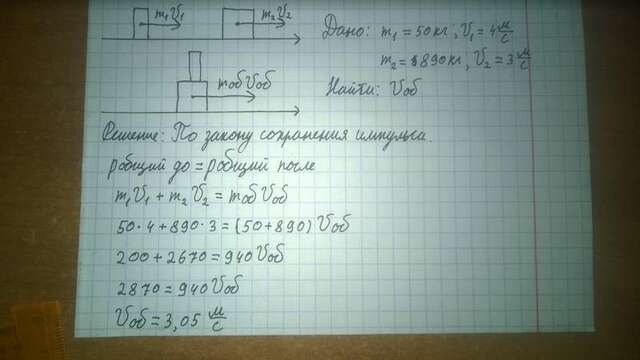 m₁V₁ m₂V₂
Дано: m₁ = 50 кг; V₁ = 4 м/с
m₂ = 890 кг, V₂ = 3 м/с
mобVоб
Найти: Vоб
Решение: По закону сохранения импульса.
pобщий до = pобщий после
m₁V₁ + m₂V₂ = mобVоб
50·4 + 890·3 = (50 + 890) Vоб
200 + 2670 = 940 Vоб
2870 = 940 Vоб
Vоб = 3,05 м/с